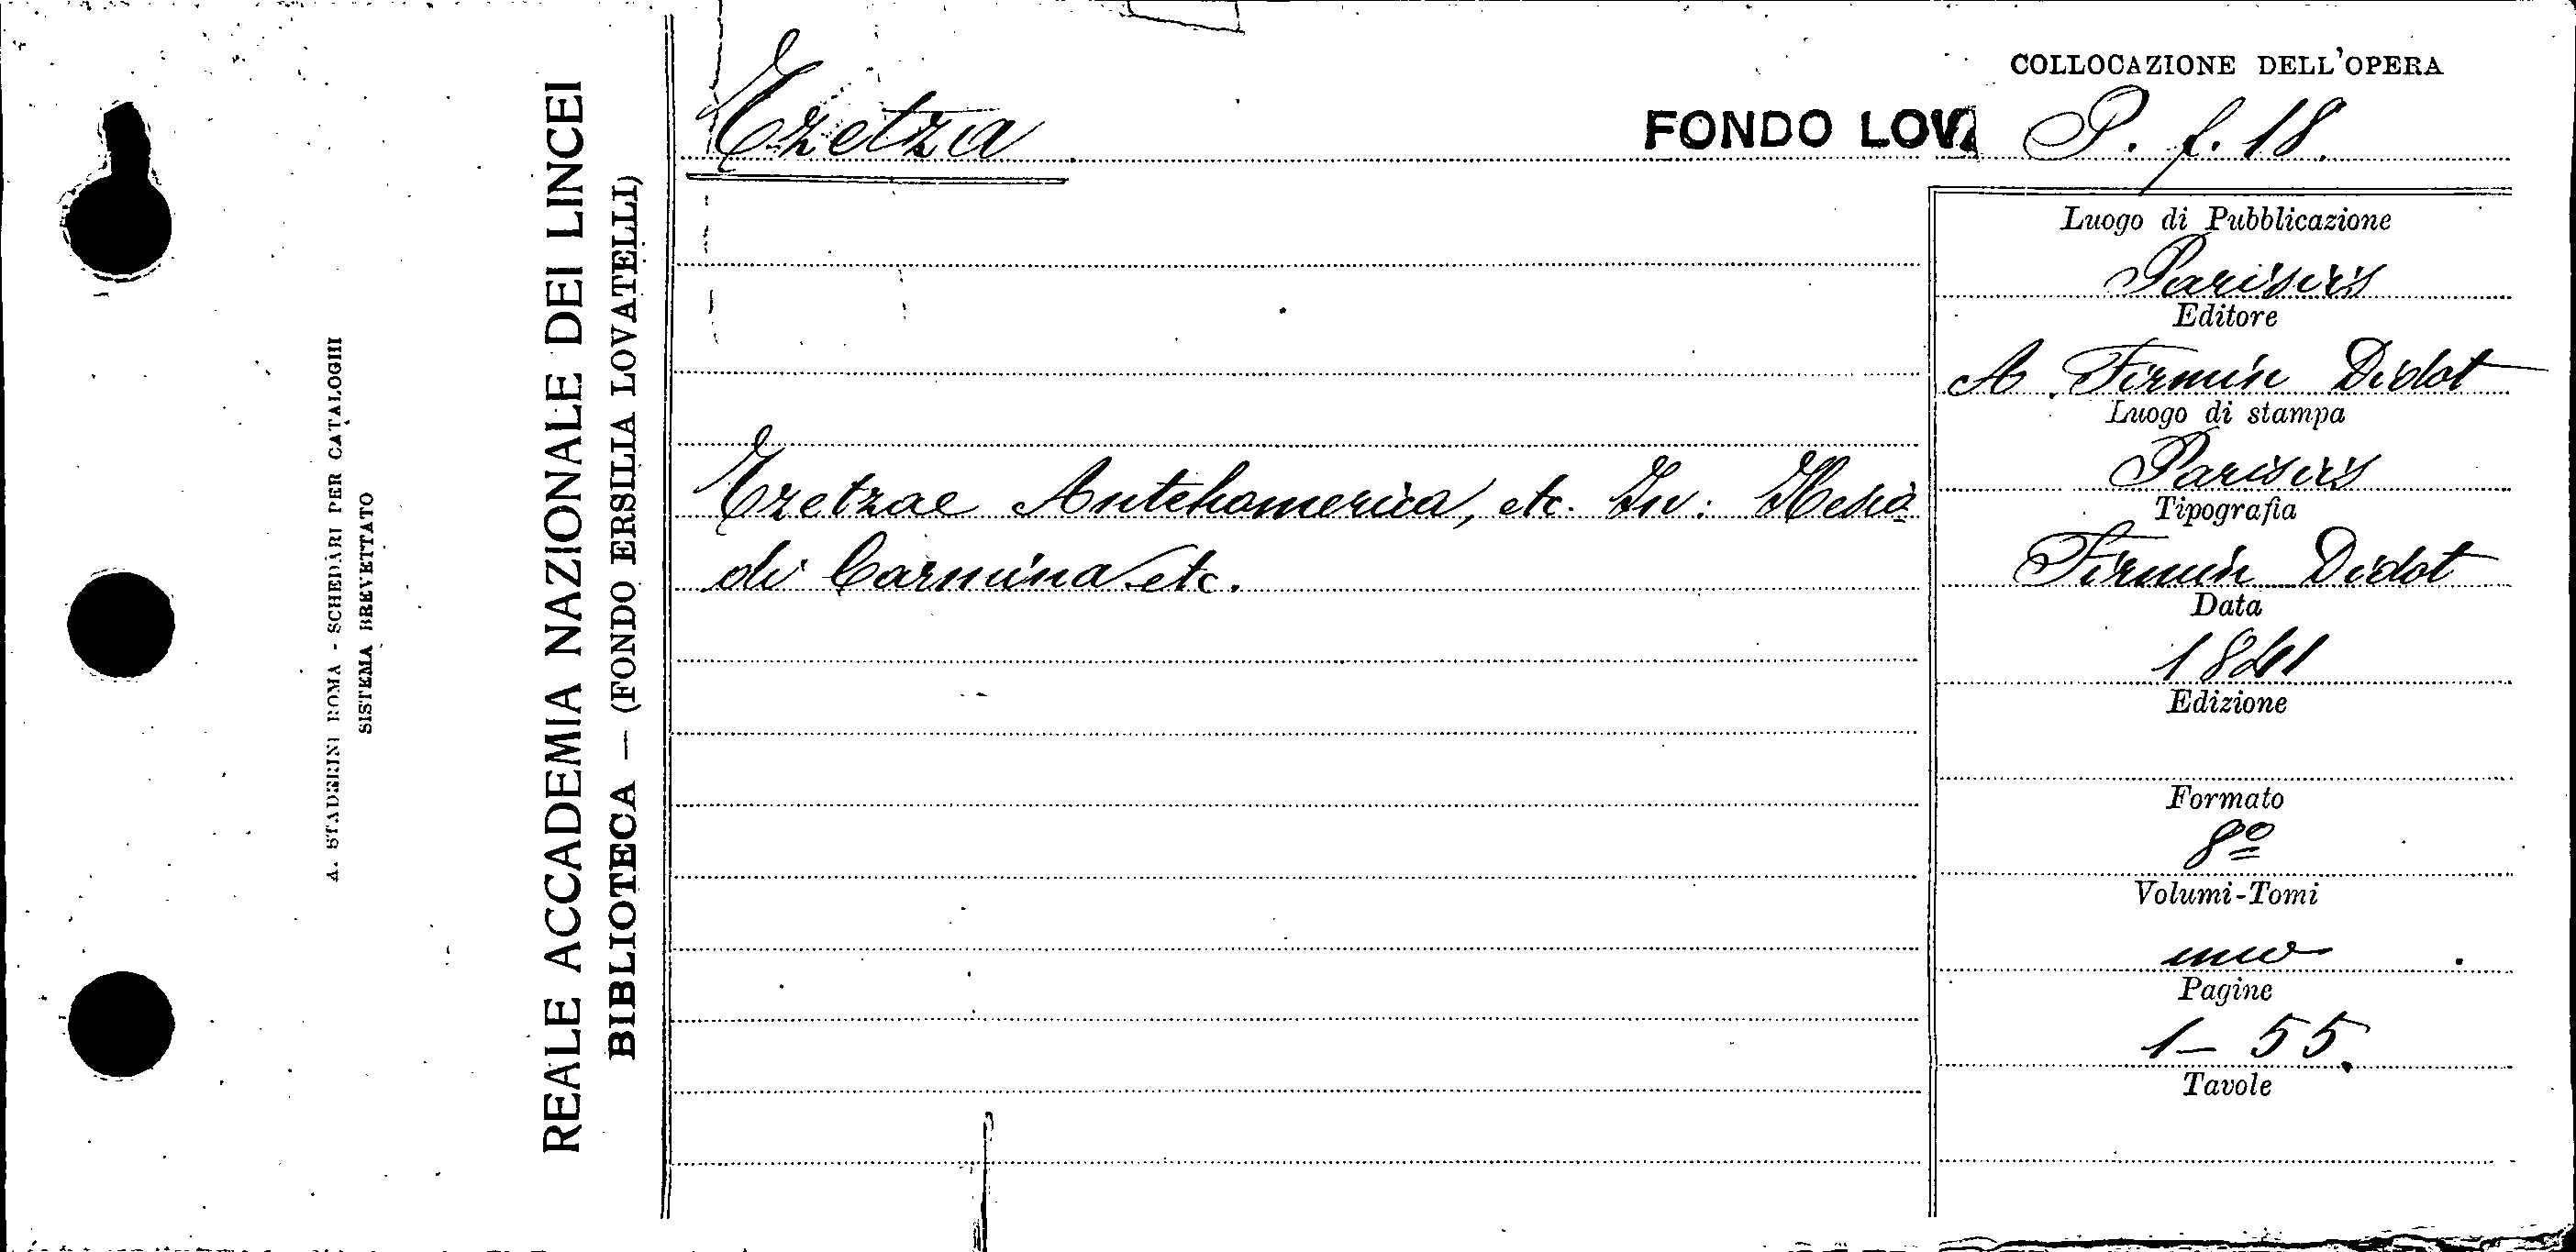 A. STADERINI ROMA - SCHEDARI PER CATALOGHI
SISTEMA BREVETTATO
REALE ACCADEMIA NAZIONALE DEI LINCEI
BIBLIOTECA — (FONDO ERSILIA LOVATELLI)
Tzetza
Tzetzae Antehomerica, etc. In: Hesio
di Carmina etc.
COLLOCAZIONE DELL'OPERA
FONDO LOVA P. f. 18.
Luogo di Pubblicazione
Parisiis
Editore
A. Firmin Didot
Luogo di stampa
Parisiis
Tipografia
Firmin Didot
Data
1841
Edizione
Formato
8º
Volumi-Tomi
uno
Pagine
1-55.
Tavole